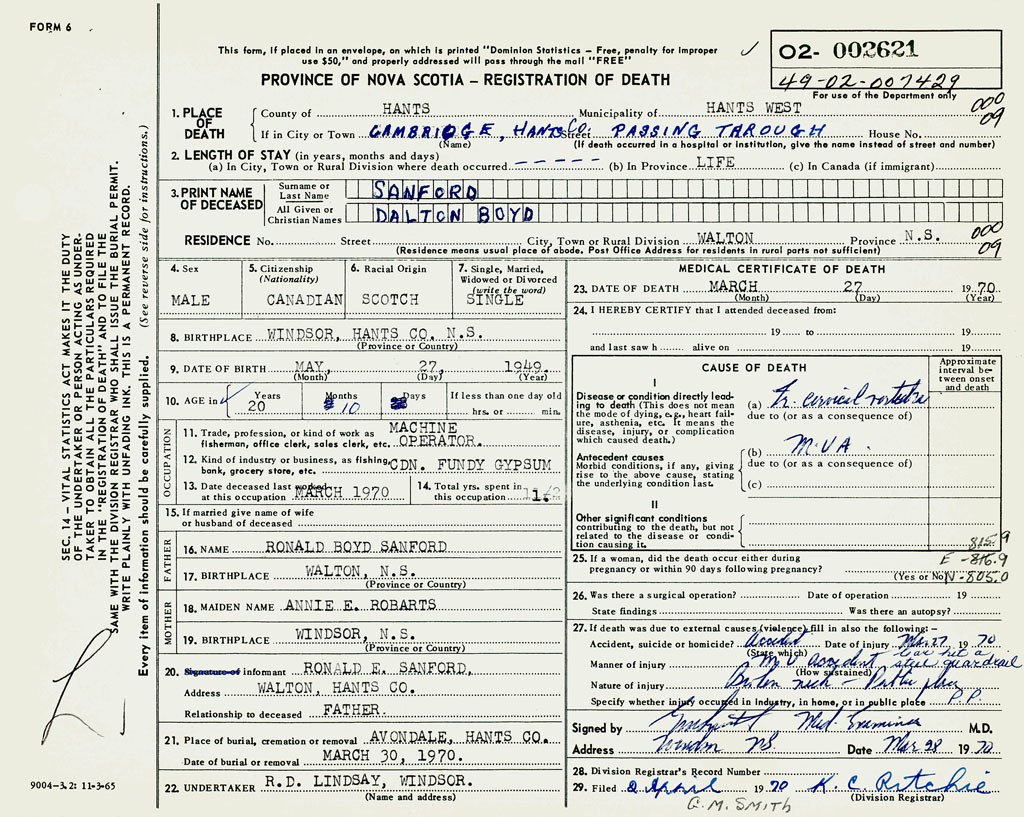 FORM 6
This form, if placed in an envelope, on which is printed "Dominion Statistics – Free, penalty for improper
use $50," and properly addressed will pass through the mail "FREE"
PROVINCE OF NOVA SCOTIA – REGISTRATION OF DEATH
02- 002621
49-02-007429
For use of the Department only
000
09
1. PLACE OF DEATH
County of HANTS Municipality of HANTS WEST
If in City or Town CAMBRIDGE, HANTS CO. Street PASSING THROUGH House No.
(Name) (If death occurred in a hospital or institution, give the name instead of street and number)
2. LENGTH OF STAY (in years, months and days)
(a) In City, Town or Rural Division where death occurred - - - - - (b) In Province LIFE (c) In Canada (if immigrant)
3. PRINT NAME OF DECEASED
Surname or Last Name SANFORD
All Given or Christian Names DALTON BOYD
RESIDENCE No. Street City, Town or Rural Division WALTON Province N.S.
(Residence means usual place of abode. Post Office Address for residents in rural parts not sufficient)
000
09
4. Sex
MALE
5. Citizenship (Nationality)
CANADIAN
6. Racial Origin
SCOTCH
7. Single, Married, Widowed or Divorced (write the word)
SINGLE
8. BIRTHPLACE WINDSOR, HANTS CO. N.S.
(Province or Country)
9. DATE OF BIRTH MAY, 27, 1949.
(Month) (Day) (Year)
10. AGE in Years Months Days If less than one day old
20 10 hrs. or min.
OCCUPATION
11. Trade, profession, or kind of work as fisherman, office clerk, sales clerk, etc. MACHINE OPERATOR.
12. Kind of industry or business, as fishing, bank, grocery store, etc. CDN. FUNDY GYPSUM
13. Date deceased last worked at this occupation MARCH 1970
14. Total yrs. spent in this occupation
15. If married give name of wife or husband of deceased
FATHER
16. NAME RONALD BOYD SANFORD
17. BIRTHPLACE WALTON, N.S.
(Province or Country)
MOTHER
18. MAIDEN NAME ANNIE E. ROBARTS
19. BIRTHPLACE WINDSOR, N.S.
(Province or Country)
20. Signature of informant RONALD E. SANFORD,
Address WALTON, HANTS CO.
Relationship to deceased FATHER.
21. Place of burial, cremation or removal AVONDALE, HANTS CO.
Date of burial or removal MARCH 30, 1970.
22. UNDERTAKER R.D. LINDSAY, WINDSOR.
(Name and address)
MEDICAL CERTIFICATE OF DEATH
23. DATE OF DEATH MARCH 27 1970
(Month) (Day) (Year)
24. I HEREBY CERTIFY that I attended deceased from:
19 to 19
and last saw h alive on 19
CAUSE OF DEATH
Approximate interval between onset and death
I
Disease or condition directly leading to death (This does not mean the mode of dying, e.g., heart failure, asthenia, etc. It means the disease, injury, or complication which caused death.)
(a) Fr. cervical vertebra
due to (or as a consequence of)
Antecedent causes
Morbid conditions, if any, giving rise to the above cause, stating the underlying condition last.
(b) MVA
due to (or as a consequence of)
(c)
II
Other significant conditions contributing to the death, but not related to the disease or condition causing it.
815.9
E -816.9
N-805.0
25. If a woman, did the death occur either during pregnancy or within 90 days following pregnancy?
(Yes or No)
26. Was there a surgical operation? Date of operation 19
State findings Was there an autopsy?
27. If death was due to external causes (violence) fill in also the following:–
Accident, suicide or homicide? Accident Date of injury Mar 27 1970
(State which) Car hit a
Manner of injury M V accident steel guardrail
(How sustained)
Nature of injury Broken neck –
Specify whether injury occurred in industry, in home, or in public place P.P.
Signed by Med. Examiner M.D.
Address Windsor NS. Date Mar 28 1970
28. Division Registrar's Record Number
29. Filed 2 April 1970 K. C. Ritchie
(Division Registrar)
G. M. SMITH
SEC. 14 – VITAL STATISTICS ACT MAKES IT THE DUTY
OF THE UNDERTAKER OR PERSON ACTING AS UNDER-
TAKER TO OBTAIN ALL THE PARTICULARS REQUIRED
IN THE "REGISTRATION OF DEATH" AND TO FILE THE
SAME WITH THE DIVISION REGISTRAR WHO SHALL ISSUE THE BURIAL PERMIT.
WRITE PLAINLY WITH UNFADING INK. THIS IS A PERMANENT RECORD.
Every item of information should be carefully supplied. (See reverse side for instructions.)
9004-3.2: 11-3-65